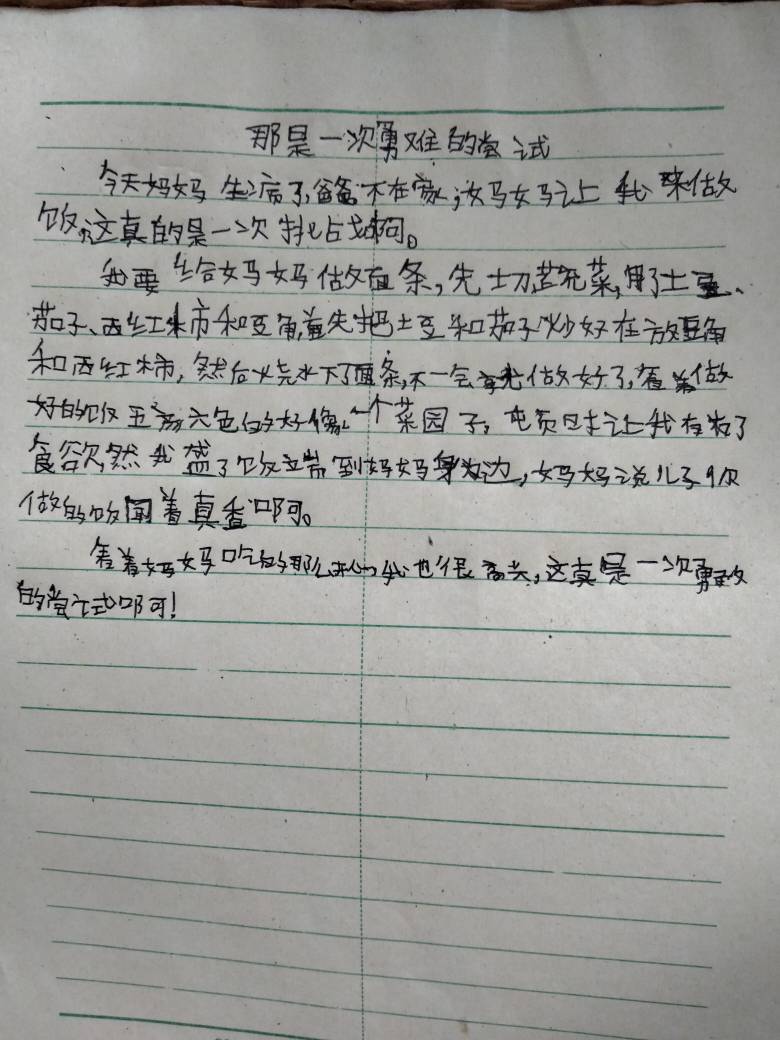 那是一次勇难的尝试
今天妈妈生病了,爸爸不在家,妈妈让我来做
饭,这真的是一次挑战啊。
我要给妈妈做面条,先切蔬菜,用了土豆、
茄子、西红柿和豆角,首先把土豆和茄子炒好在放豆角
和西红柿,然后火烧水下了面条,不一会就做好了,看着做
好的饭五颜六色的好像一个菜园子,屯页时让我有
食欲然我盛了饭端到妈妈身边,妈妈说儿子你
做的饭闻着真香啊。
看着妈妈吃的那么开心我也很高兴,这真是一次勇敢
的尝试啊!